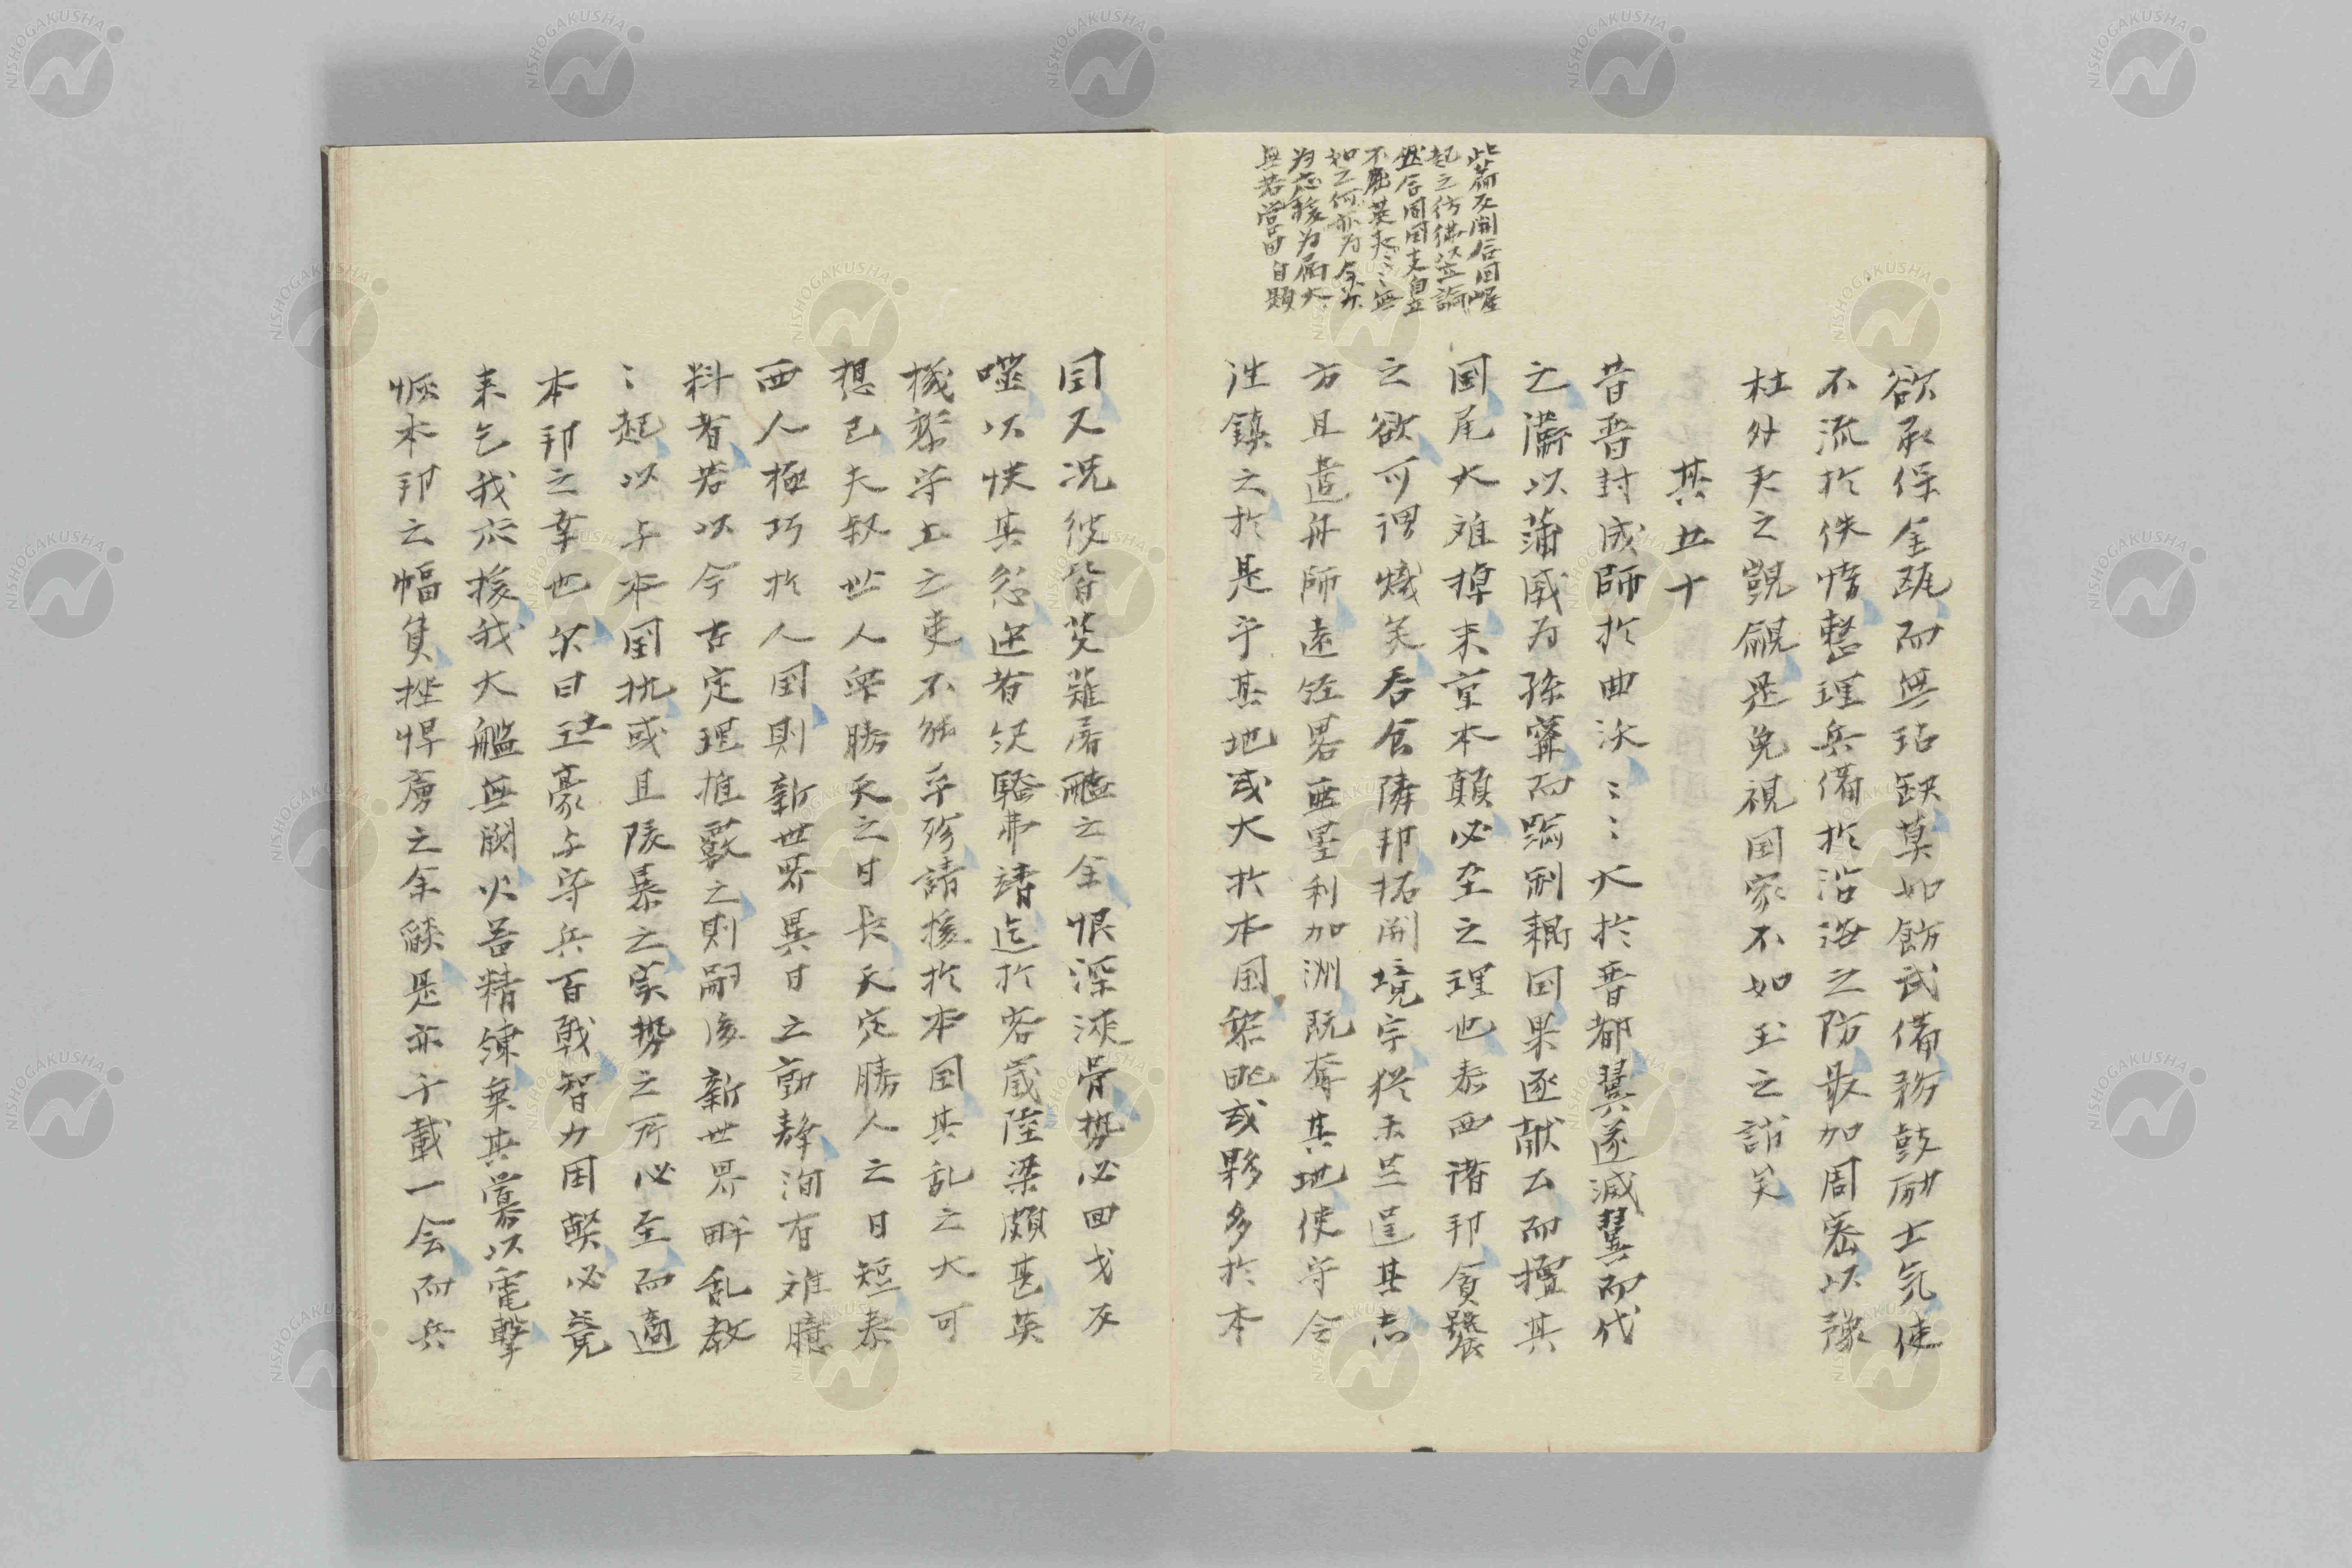 欲永保全甌而無玷缺莫如飭武備務鼓励士気使
不流於佚惰整理兵備於沿海之防最加周密以豫
杜外夷之覬覦是免視国家不如玉之誚矣
其五十
昔晋封成師於曲沃〻〻大於晋都翼遂滅翼而代
之衛以蒲戚為孫寗而跨制耦国果逐献公而擅其
国尾大难掉末重本顛必至之理也泰西諸邦貪饕
之欲可謂熾矣呑食隣邦拓開境宇猶未足逞其志
方且遣舟師遠経畧亜墨利加洲既奪其地使守令
涖鎮之於是乎其地或大於本国黎民或夥多於本
此篇及閲合同崛
起之彷彿以立論
然合同国夫自立
不能英夷〻〻無
如之何亦为今亦
为忘移为届大
無若嘗曰自題
国又况彼皆英雄屠醢之余恨深浹骨勢必回戈反
噬以快其忿逆者須驕弗靖迄於容歳陸梁頗甚英
機黎守土之吏不能平殄請援於本国其乱之大可
想已夫叔世人衆勝天之日長天定勝人之日短泰
西人極巧於人国則新世界異日之動静洵有难臆
料者若以今古定理推覈之則嗣後新世界畔乱数
〻起以与本国抗或且陵暴之実勢之所必至而適
本邦之幸也余曰土王豪与守兵百戦智力困弊必竟
来乞我於援我大艦無闕火器精錬棄其嘗以電撃
恢本邦之幅員挫悍虜之余燄是亦千載一会而兵